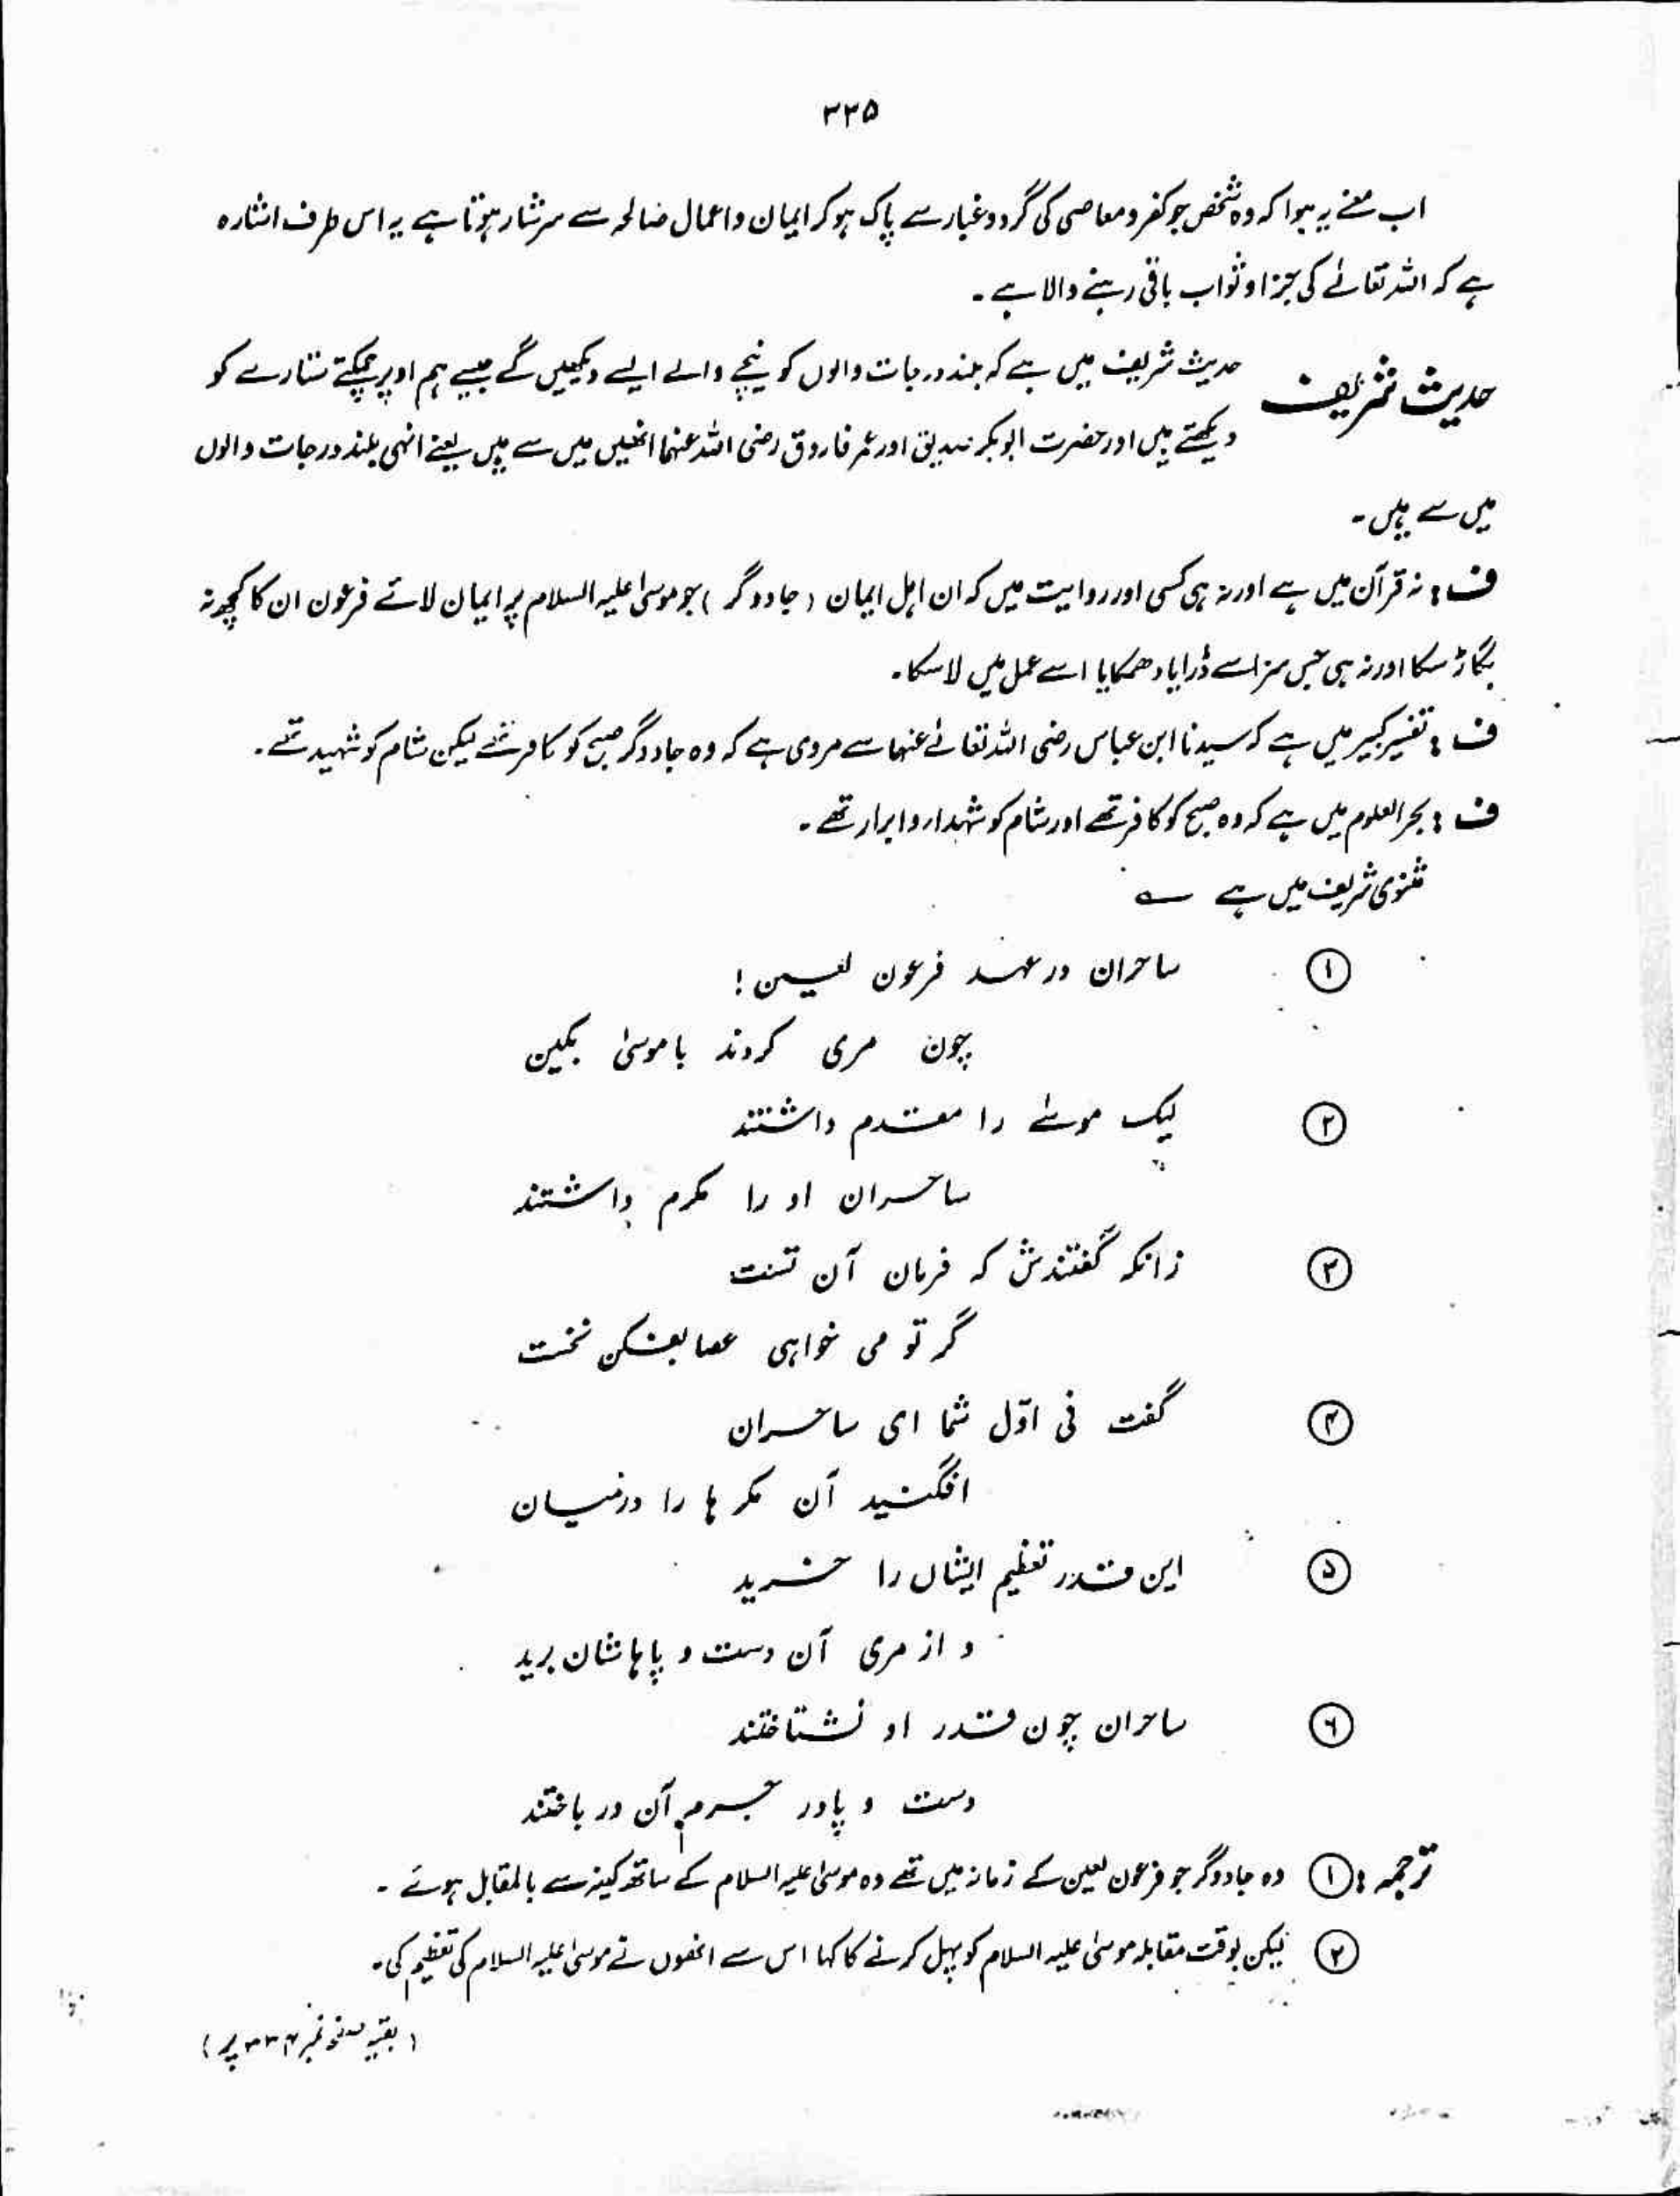 ۳۳۵
اب معنے یہ ہوا کہ وہ شخص جو کفر و معاصی کی گرد و غبار سے پاک ہو کر ایمان و اعمال صالحہ سے سرشار ہوتا ہے یہ اس طرف اشارہ
ہے کہ اللہ تعالےٰ کی جزا و ثواب باقی رہنے والا ہے ۔
حدیث شریف حدیث شریف میں ہے کہ بلند درجات والوں کو نیچے والے ایسے دیکھیں گے جیسے ہم اوپر چمکتے ستارے کو
دیکھتے ہیں اور حضرت ابوبکر صدیق اور عمر فاروق رضی اللہ عنہما انھیں میں سے ہیں یعنے انہی بلند درجات والوں
میں سے ہیں ۔
ف : نہ قرآن میں ہے اور نہ ہی کسی اور روایت میں کہ ان اہل ایمان ( جادوگر ) جو موسیٰ علیہ السلام پر ایمان لائے فرعون ان کا کچھ نہ
بگاڑ سکا اور نہ ہی جس سزا سے ڈرایا دھمکایا اسے عمل میں لا سکا ۔
ف : تفسیر کبیر میں ہے کہ سیدنا ابن عباس رضی اللہ تعالےٰ عنہما سے مروی ہے کہ وہ جادوگر صبح کو کافر تھے لیکن شام کو شہید تھے ۔
ف : بحر العلوم میں ہے کہ وہ صبح کو کافر تھے اور شام کو شہداء و ابرار تھے ۔
مثنوی شریف میں ہے ؎
① ساحران در عہد فرعون لعین !
چون مری کردند با موسیٰ بکین
② لیک موسےٰ را مقدم داشتند
ساحران او را مکرم داشتند
③ زانکہ گفتندش کہ فرمان آن تست
گر تو می خواہی عصا بفکن نخست
④ گفت نی اوّل شما ای ساحران
افگنید آن مکر ہا را درمیان
⑤ این قدر تعظیم ایشاں را خرید
و از مری آن دست و پاہا شان برید
⑥ ساحران چون قدر او نشناختند
دست و پا در جرم آن در باختند
ترجمہ : ① وہ جادوگر جو فرعون لعین کے زمانہ میں تھے وہ موسیٰ علیہ السلام کے ساتھ کینہ سے بالمقابل ہوئے ۔
② لیکن بوقت مقابلہ موسیٰ علیہ السلام کو پہل کرنے کا کہا اس سے انھوں نے موسیٰ علیہ السلام کی تعظیم کی ۔
( بقیہ صفحہ نمبر ۳۳۶ پر )